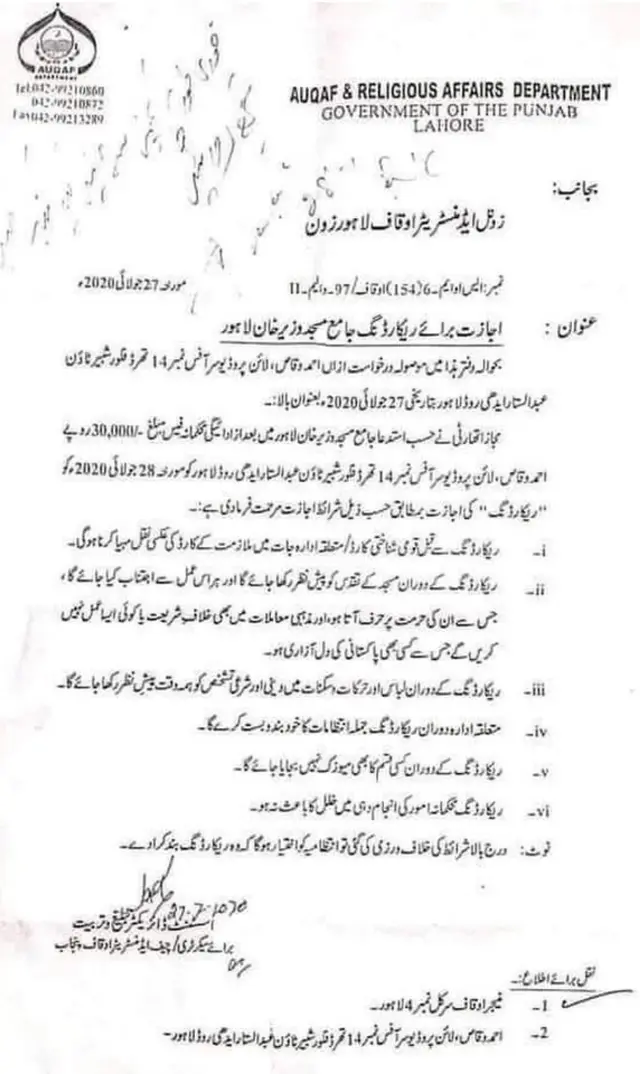 AUQAF
DEPARTMENT
Tel:042-99210860
042-99210872
Fax042-99213289
AUQAF & RELIGIOUS AFFAIRS DEPARTMENT
GOVERNMENT OF THE PUNJAB
LAHORE
بجانب:
زونل ایڈمنسٹریٹر اوقاف لاہور زون
نمبر: ایس او ایم-6(154)اوقاف/97-والیم-II مورخہ 27 جولائی 2020ء
عنوان: اجازت برائے ریکارڈنگ جامع مسجد وزیر خان لاہور
بحوالہ دفتر ہذا میں موصولہ درخواست ازاں احمد وقاص، لائن پروڈیوسر آفس نمبر 14 تھرڈ فلور شبیر ٹاؤن
عبدالستار ایدھی روڈ لاہور بتاریخ 27 جولائی 2020ء بعنوان بالا:۔
مجاز اتھارٹی نے حسب استدعا جامع مسجد وزیر خان لاہور میں بعد از ادائیگی محکمانہ فیس مبلغ -/30,000 روپے
احمد وقاص، لائن پروڈیوسر آفس نمبر 14 تھرڈ فلور شبیر ٹاؤن عبدالستار ایدھی روڈ لاہور کو مورخہ 28 جولائی 2020ء کو
"ریکارڈنگ" کی اجازت بمطابق حسب ذیل شرائط اجازت مرحمت فرمادی ہے:۔
i- ریکارڈنگ سے قبل قومی شناختی کارڈ/متعلقہ ادارہ جات میں ملازمت کے کارڈ کی عکسی نقل مہیا کرنا ہوگی۔
ii- ریکارڈنگ کے دوران مسجد کے تقدس کو پیش نظر رکھا جائے گا اور ہر اس عمل سے اجتناب کیا جائے گا،
جس سے ان کی حرمت پر حرف آتا ہو، اور مذہبی معاملات میں بھی خلاف شریعت یا کوئی ایسا عمل نہیں
کریں گے جس سے کسی بھی پاکستانی کی دل آزاری ہو۔
iii- ریکارڈنگ کے دوران لباس اور حرکات و سکنات میں دینی اور شرعی تشخص کو ہمہ وقت پیش نظر رکھا جائے گا۔
iv- متعلقہ ادارہ دوران ریکارڈنگ جملہ انتظامات کا خود بندوبست کرے گا۔
v- ریکارڈنگ کے دوران کسی قسم کا بھی میوزک نہیں بجایا جائے گا۔
vi- ریکارڈنگ محکمانہ امور کی انجام دہی میں خلل کا باعث نہ ہو۔
نوٹ: درج بالا شرائط کی خلاف ورزی کی گئی تو انتظامیہ کو اختیار ہوگا کہ وہ ریکارڈنگ بند کرادے۔
27-7-2020
اسسٹنٹ ڈائریکٹر تبلیغ و تربیت
برائے سیکرٹری/چیف ایڈمنسٹریٹر اوقاف پنجاب
نقل برائے اطلاع:۔
1- منیجر اوقاف سرکل نمبر 4 لاہور۔
2- احمد وقاص، لائن پروڈیوسر آفس نمبر 14 تھرڈ فلور شبیر ٹاؤن عبدالستار ایدھی روڈ لاہور۔